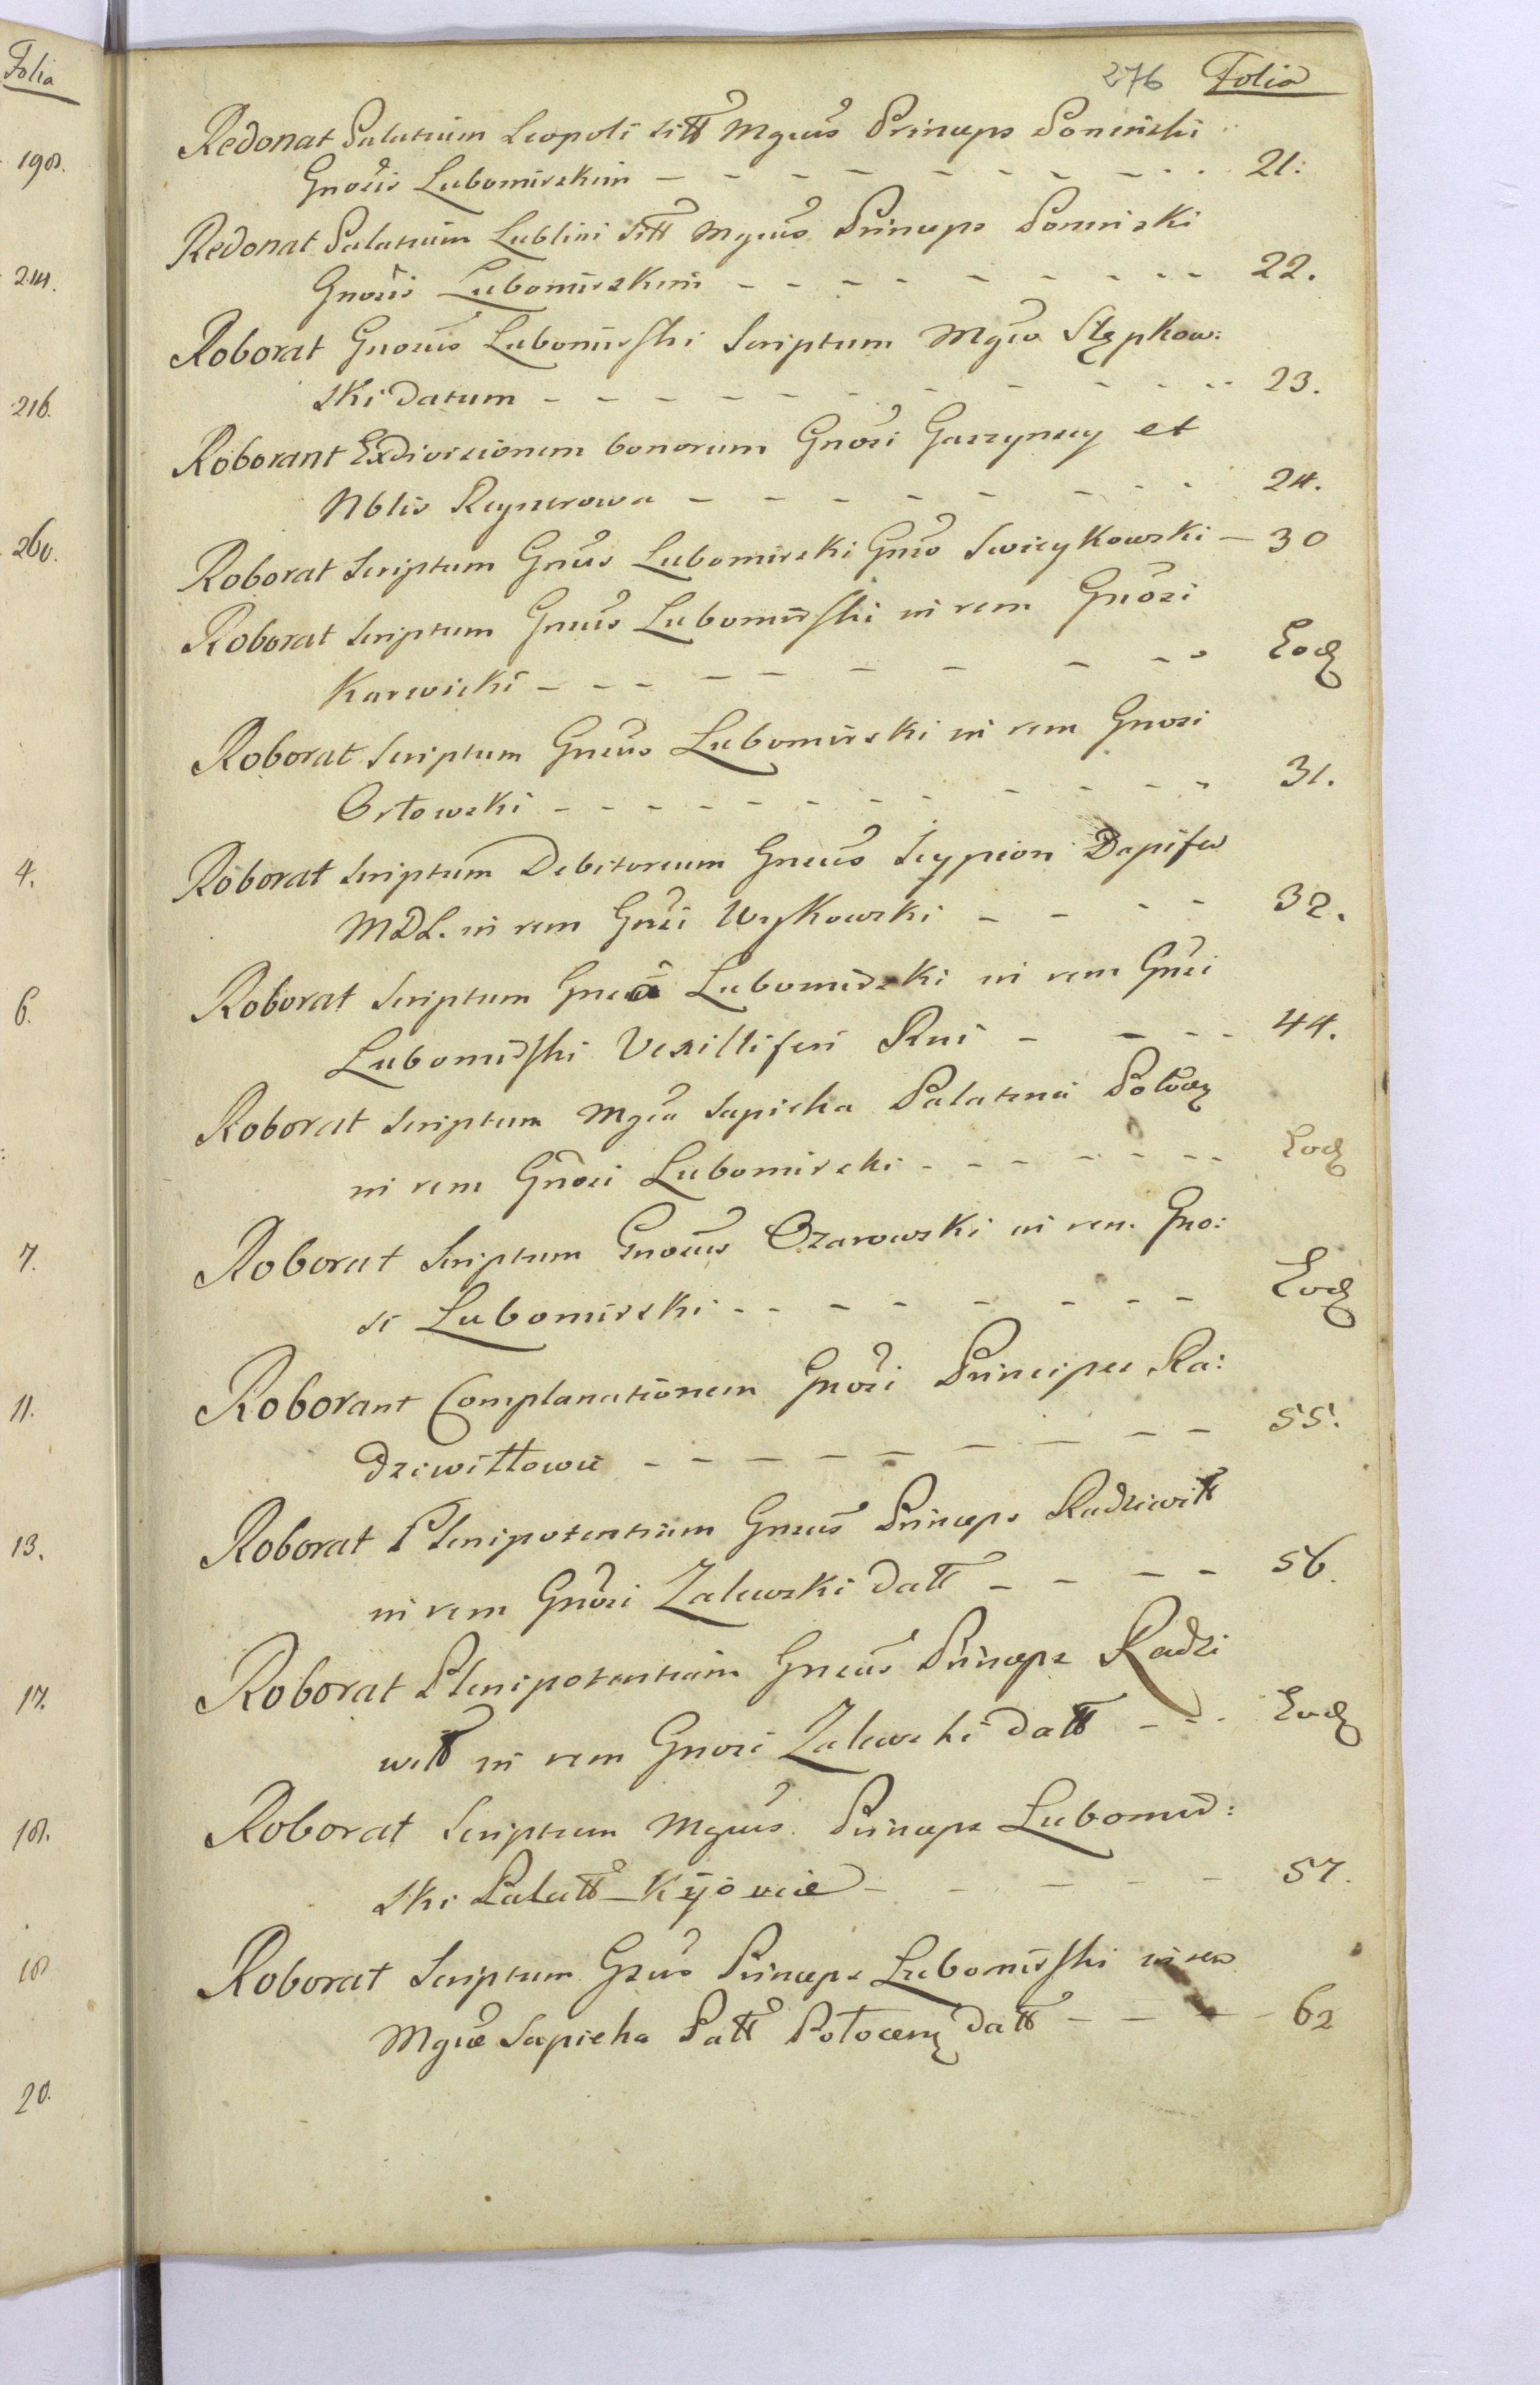 276 Folia
Redonat Palatium Leopoli sitt Mgcus Princeps Poninski
Gnosis Lubomirskim - - - - - - - - - 21.
Redonat Palatium Lublini sitt Mgcus Princeps Poninski
Gnosis Lubomirskim - - - - - - - - - 22.
Roborat Gnosus Lubomirski Scriptum Mgco Stępkow:
ski datum - - - - - - - - - - 23.
Roborant Exdivisionem bonorum Gnosi Garzynscy et
Nblis Reynerowa - - - - - - - - 24.
Roborat Scriptum Gnsus Lubomirski Gnso Swieykowski - 30
Roborat Scriptum Gnsus Lubomirski in rem Gnosi
Karwicki - - - - - - - - - Eod
Roborat Scriptum Gnsus Lubomirski in rem Gnosi
Orłowski - - - - - - - - - - 31.
Roborat Scriptum Debitoreum Gnsus Scypion Dapifer
MDL. in rem Gnsi Wykowski - - - - 32.
Roborat Scriptum Lubomirski in rem Gnsi
Lubomirski Vexilliferi Rni - - - - 44.
Roborat Scriptum Mgcu Sapieha Palatinü Połocen
in rem Gnosi Lubomirski - - - - - - - Eod
Roborat Scriptum Gnosus Ozarowski in rem Gno:
si Lubomirski - - - - - - - - Eod
Roborant Complanationem Gnosi Principes Ra:
dziwiłłowie - - - - - - - - - 55.
Roborat Plenipotentiam Gnsus Princeps Radziwiłł
in rem Gnosi Zalewski datt - - - - 56.
Roborat Plenipotentiam Gnsus Princeps Radzi
wiłł in rem Gnosi Zalewski datt - - - Eod
Roborat Scriptum Mgcus Princeps Lubomir:
ski Palatt Kijoviæ - - - - - - 57.
Roborat Scriptum Gnsus Princeps Lubomirski in rem
Mgcæ Sapieha Patt Połocen datt - - - - 62
Folia
198.
214.
216.
260.
4.
6.
7.
11.
13.
17.
18.
18
20.